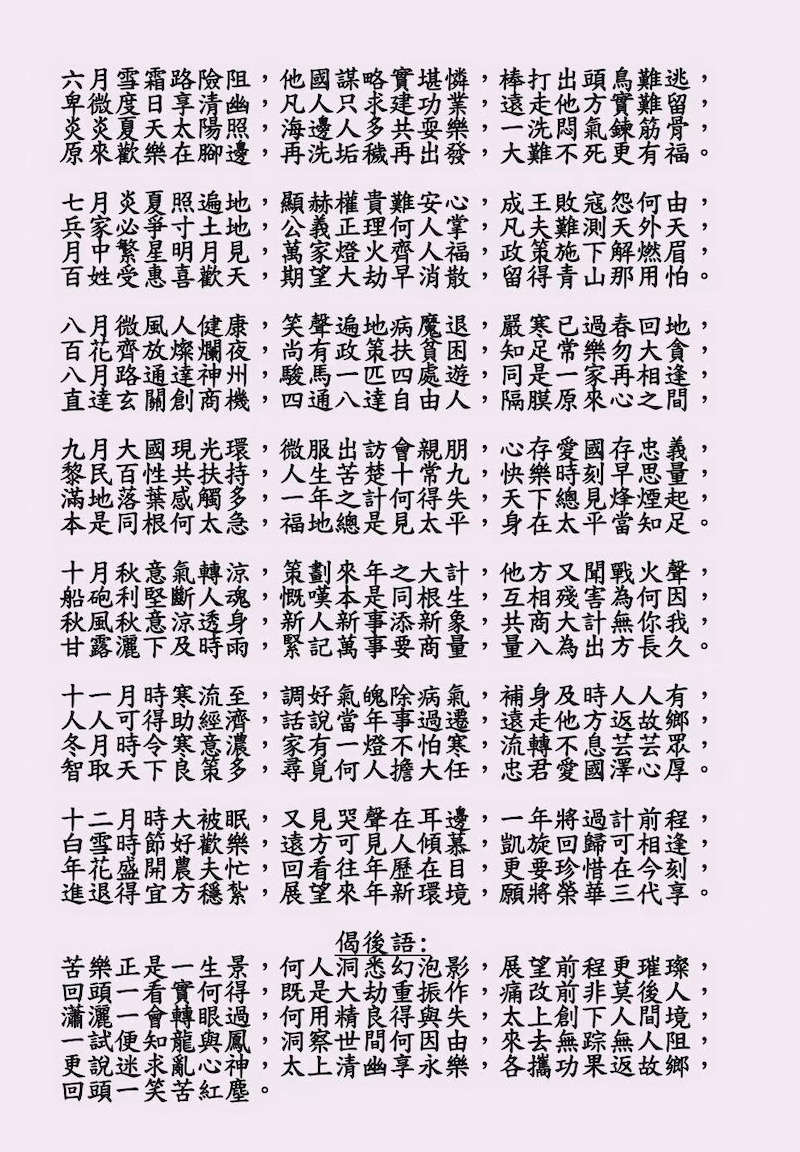 六月雪霜路險阻，他國謀略實堪憐，棒打出頭鳥難逃，
卑微度日享清幽，凡人只求建功業，遠走他方實難留，
炎炎夏天太陽照，海邊人多共耍樂，一洗悶氣鍊筋骨，
原來歡樂在腳邊，再洗垢穢再出發，大難不死更有福。
七月炎夏照遍地，顯赫權貴難安心，成王敗寇怨何由，
兵家必爭寸土地，公義正理何人掌，凡夫難測天外天，
月中繁星明月見，萬家燈火齊人福，政策施下解燃眉，
百姓受惠喜歡天，期望大劫早消散，留得青山那用怕。
八月微風人健康，笑聲遍地病魔退，嚴寒已過春回地，
百花齊放燦爛夜，尚有政策扶貧困，知足常樂勿大貪，
八月路通達神州，駿馬一匹四處遊，同是一家再相逢，
直達玄關創商機，四通八達自由人，隔膜原來心之間，
九月大國現光環，微服出訪會親朋，心存愛國存忠義，
黎民百性共扶持，人生苦楚十常九，快樂時刻早思量，
滿地落葉感觸多，一年之計何得失，天下總見烽煙起，
本是同根何太急，福地總是見太平，身在太平當知足。
十月秋意氣轉涼，策劃來年之大計，他方又聞戰火聲，
船砲利堅斷人魂，慨嘆本是同根生，互相殘害為何因，
秋風秋意涼透身，新人新事添新象，共商大計無你我，
甘露灑下及時雨，緊記萬事要商量，量八為出方長久。
十一月時寒流至，調好氣魄除病氣，補身及時人人有，
人人可得助經濟，話說當年事過遷，遠走他方返故鄉，
冬月時令寒意濃，家有一燈不怕寒，流轉不息芸芸眾，
智取天下良策多，尋覓何人擔大任，忠君愛國澤心厚。
十二月時大被眠，又見哭聲在耳邊，一年將過計前程，
白雪時節好歡樂，遠方可見人傾慕，凱旋回歸可相逢，
年花盛開農夫忙，回看往年歷在目，更要珍惜在今刻，
進退得宜方穩紮，展望來年新環境，願將榮華三代享。
偈後語:
苦樂正是一生景，何人洞悉幻泡影，展望前程更璀璨，
回頭一看實何得，既是大劫重振作，痛改前非莫後人，
瀟灑一會轉眼過，何用精良得與失，太上創下人間境，
一試便知龍與鳳，洞察世間何因由，來去無踪無人阻，
更說迷求亂心神，太上清幽享永樂，各攜功果返故鄉，
回頭一笑苦紅塵。